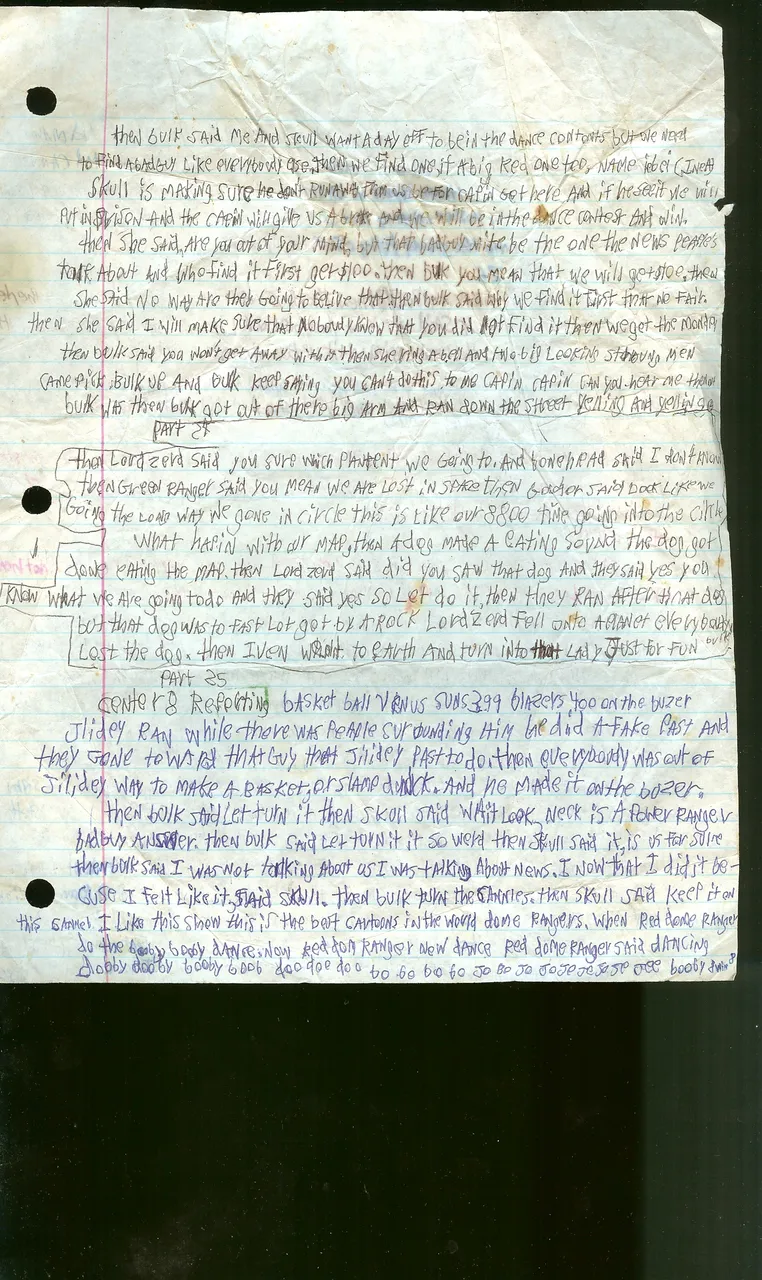 then bulk said me and skull want a day off to be in the dance contonts but we need
to find a badguy like everybody ese, then we find one, it a big red one too, name
skull is making sure he dont runaway from us be for capin get here and if he see it we will
put in prison and the capin will give us a brak and we will be in the dance contest and win.
then she said, are you out of your mind, but that badguy mite be the one the news people's
talk about and who find it first get $100. then bulk you mean that we will get $100. then
she said no way are they going to belive that then bulk said why we find it first that no fair.
then she said I will make sure that nobody know that you did not find it then we get the money
then bulk said you won't get away with it then she ring a bell and two big looking strong men
came pick bulk up and bulk keep saying you cant do this to me capin capin can you hear me then
bulk was then bulk got out of there big arm and ran down the street yelling and yelling
Part 24
then Lord zerd said you sure wich planent we going to. And bonehead said I don't know
then Green Ranger said you mean we are lost in spase then said look like we
going the long way we gone in circle this is like our 8800 time going into the circle
what hapin with our map, then a dog made a eating sound the dog got
done eating the map. then Lord zerd said did you saw that dog and they said yes you
know what we are going to do and they said yes so let do it, then they ran after that dog
but that dog was to fast Lot got by a rock Lord Zerd fell onto a planet everybody
lost the dog. then Iven went to earth and turn into that lady just for fun
Part 25
center 8 Repeting basket ball venus suns 399 blazers 400 on the buzer
Jlidey ran while there was people surounding him he did a fake past and
they gone to that guy that Jlidey past to do. then everybody was out of
Jilidey way to make a basket, or slame dunck. and he made it on the buzer.
then bulk said Let turn it then skull said wait look, neck is a power Ranger
badguy answer. then bulk said let turn it it so werd then skull said it is us for sure
then bulk said I was not talking about us I was talking about news. I now that I did it be-
cuse I felt like it, said skull. then bulk turn the then skull said keep it on
this I like this show this is the best cartoons in the would dome rangers. when Red dome Ranger
do the booby booby dance. now Red dom Ranger new dance Red dome Ranger said dancing
dooby dooby booby boob doo doe doo bo bo bo bo Jo Bo Jo Jo Je Je Je Je Jee booby